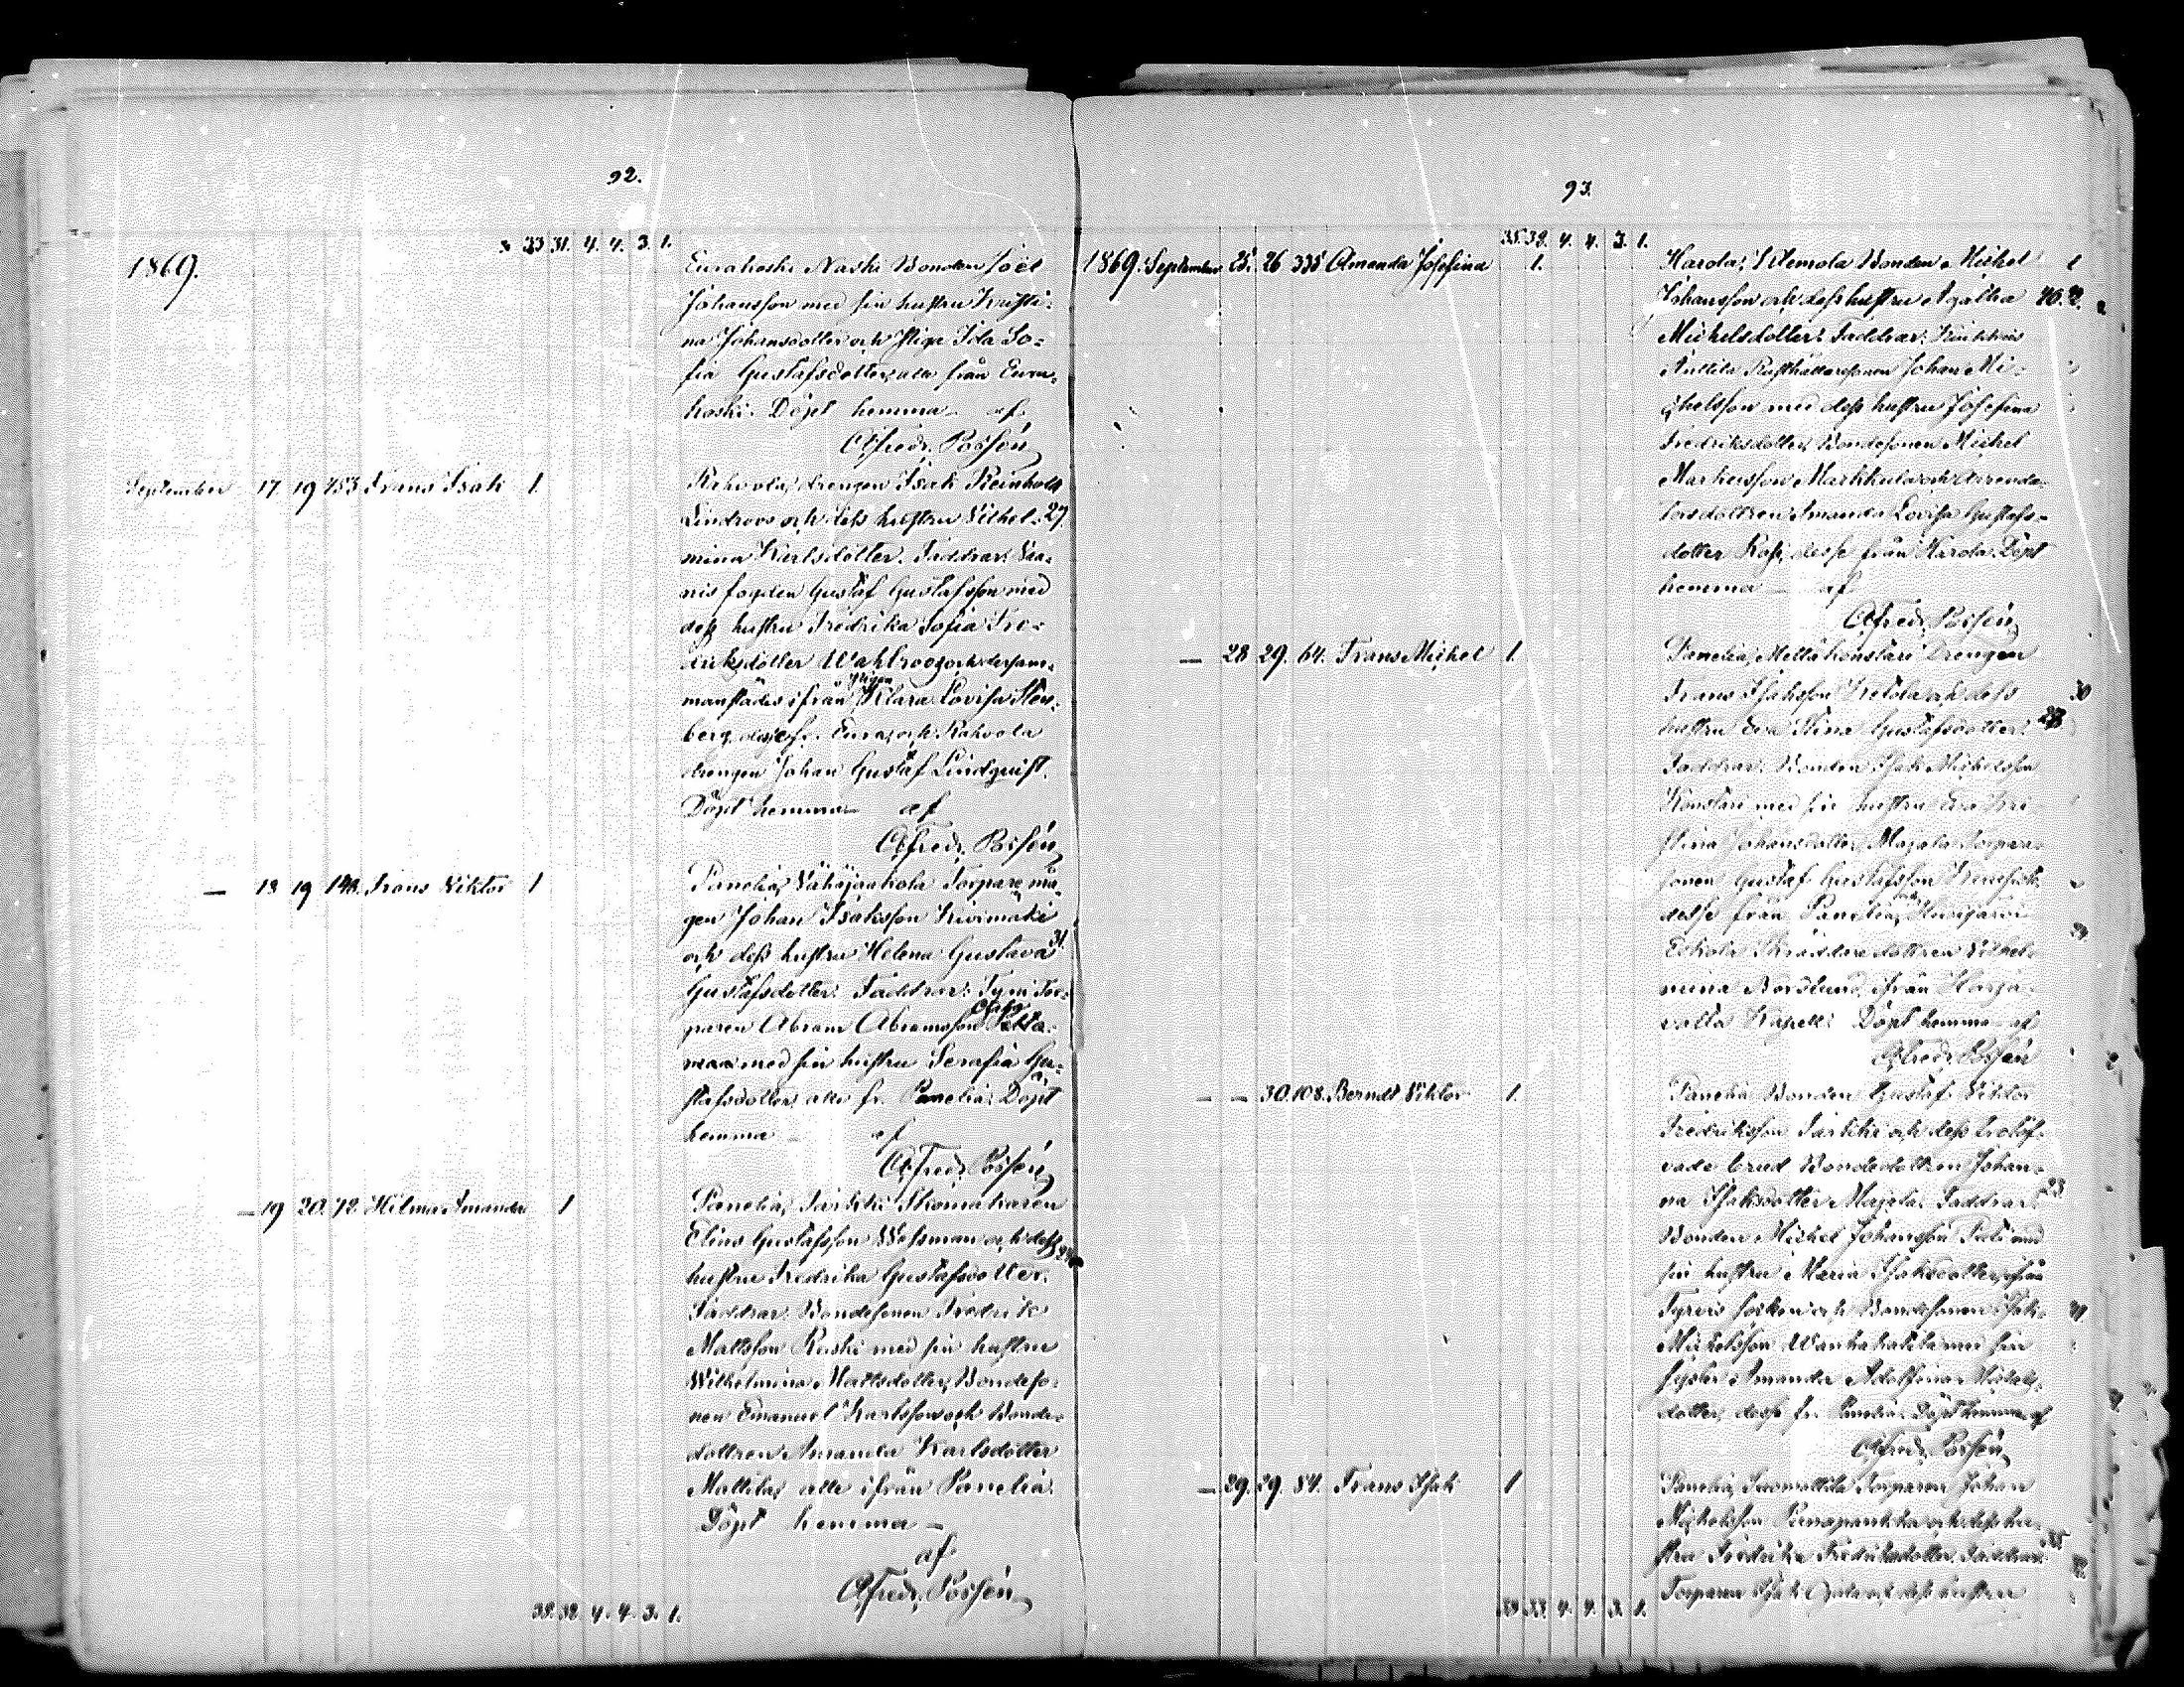 92.
33 31. 4. 4. 3. 1.
1869.
Eurakoski Naski Bonden Joel
Johansson med sin hustru Kristi-
na Johansdotter och Pliga Ida So-
fia Gustafsdotter, alla från Eura-
koski. Döpt hemma af
Alfred Possén
September 17 19 153 Frans Isak 1.
Rahvola, drengen Isak Reinhold
Lindroos och dess hustru Vilhel- 27
mina Karlsdotter. Faddrar:
fogden Gustaf Gustafsson med
dess hustru Fredrika Sofia Fre-
driksdotter Wahlroos och dersam-
manstädes ifrån pigan Klara Lovisa Sten-
berg, desse fr. Eura, och Rahvola
drengen Johan Gustaf Lindquist.
Döpt hemma af
Alfred Possén
— 18 19 140. Frans Viktor 1
Panelia, Vähäjaakola Torpare må-
gen Johan Isaksson Kivimäki
och dess hustru Helena Gustava 31.
Gustafsdotter. Faddrar: Tor-
paren Abram Abramsson
maa med sin hustru Serafia Gu-
stafsdotter, alla fr. Panelia. Döpt
hemma af
Alfred Possén
— 19 20. 72. Hilma Amanda 1
Panelia, Skomakaren
Elias Gustafsson Wessman och dess
hustru Fredrika Gustafsdotter.
Faddrar: Bondesonen Fredrik
Mattsson Ruski med sin hustru
Wilhelmina Mattsdotter, Bondeso-
nen Emanuel Karlsson och Bonde-
dottren Amanda Karlsdotter
Mattila, alla ifrån Panelia.
Döpt hemma —
af
Alfred Possén
33. 32. 4. 4. 3. 1.
93.
33. 32. 4. 4. 3. 1.
1869. September 25. 26 335 Amanda Josefina 1.
Harola, Bonden Michel
Johansson och dess hustru Agatha 40.
Michelsdotter. Faddrar:
Anttila Rusthållaresonen Johan Mi-
chelsson med dess hustru Josefina
Fredriksdotter, Bondesonen Michel
Markusson Markkula och Arrenda-
torsdottren Amanda Lovisa Gustafs-
dotter, desse från Harola. Döpt
hemma — af
Alfred Possén
— 28 29. 64. Frans Michel 1.
Panelia, Drengen
Frans Isaksson och dess 30
hustru Eva Stina Gustafsdotter. 28
Faddrar: Bonden Isak Michelsson
Konstari med sin hustru Eva Kri-
stina Johansdotter, Majala Torpare-
sonen Gustaf Gustafsson
desse från Panelia,
Eskola Skräddaredottren Vilhel-
mina Nordlund, ifrån Harja-
valta Kapell. Döpt hemma af
Alfred Possén
— — 30. 108. Berndt Viktor 1.
Panelia Bonden Gustaf Viktor
Fredriksson och dess trolof-
vade brud Bondedottren Johan-
na Isaksdotter Majala. Faddrar: 23
Bonden Michel Johansson med
sin hustru Maria Isaksdotter, ifrån
Tyrvis socken och Bondesonen Isak
Michelsson med sin
syster Amanda Adolfina Michels-
dotter, desse fr. Panelia. Döpt hemma af
Alfred Possén
— 29. 29. 84. Frans Isak 1
Panelia, Torparen Johan
Michelsson och dess hu-
stru Fredrika Fredriksdotter. Faddrar: 35
Torparen Isak och dess hustru
33. 33. 4. 4. 3. 1.